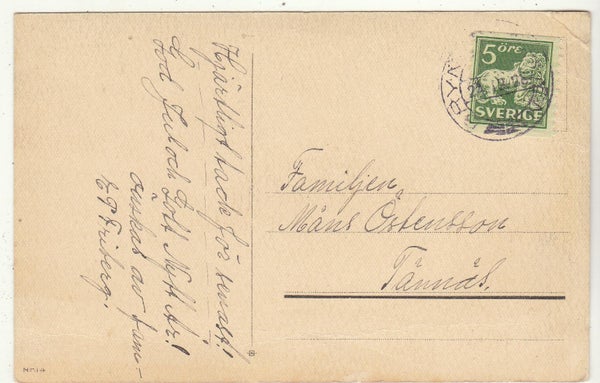 Hjärtligt tack för senast!
God Jul och Gott Nytt År!
önskas av fam-
E P Friberg.
5 ÖRE
SVERIGE
Familjen
Måns Östensson
Tännäs.